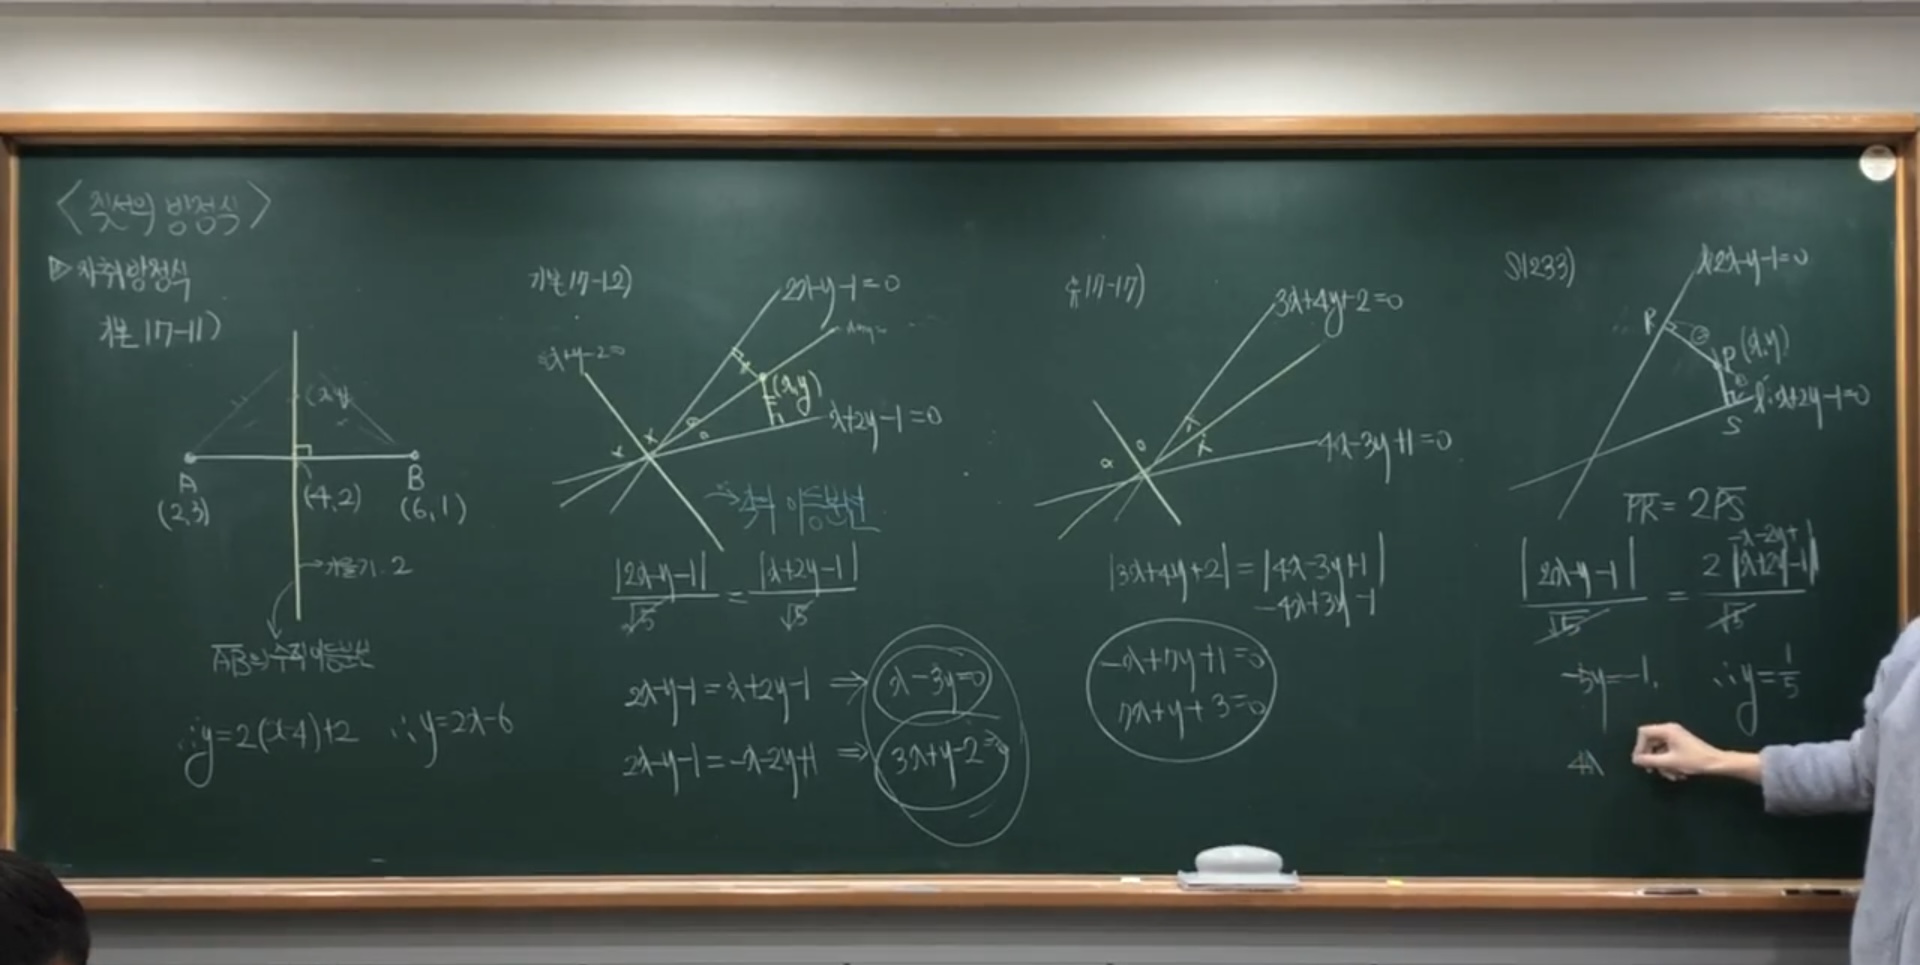 <직선의 방정식>
▷ 자취방정식
기본 17-11)
(x,y)
A
B
(2,3)
(4,2)
(6,1)
→기울기:2
AB의 수직이등분선
∴y=2(x-4)+2 ∴y=2x-6
기본 17-12)
2x-y-1=0
x+y-2=
(x,y)
x+2y-1=0
|2x-y-1|/√5 = |x+2y-1|/√5
2x-y-1=x+2y-1 ⇒ x-3y=0
2x-y-1=-x-2y+1 ⇒ 3x+y-2=0
유 17-17)
3x+4y+2=0
4x-3y+1=0
|3x+4y+2|=|4x-3y+1|
-4x+3y-1
-x+7y+1=0
7x+y+3=0
S1233)
2x-y-1=0
R
P(x,y)
x+2y-1=0
S
PR=2PS
-x-2y+1
|2x-y-1|/√5 = 2|x+2y-1|/√5
-5y=-1. ∴y=1/5
4x